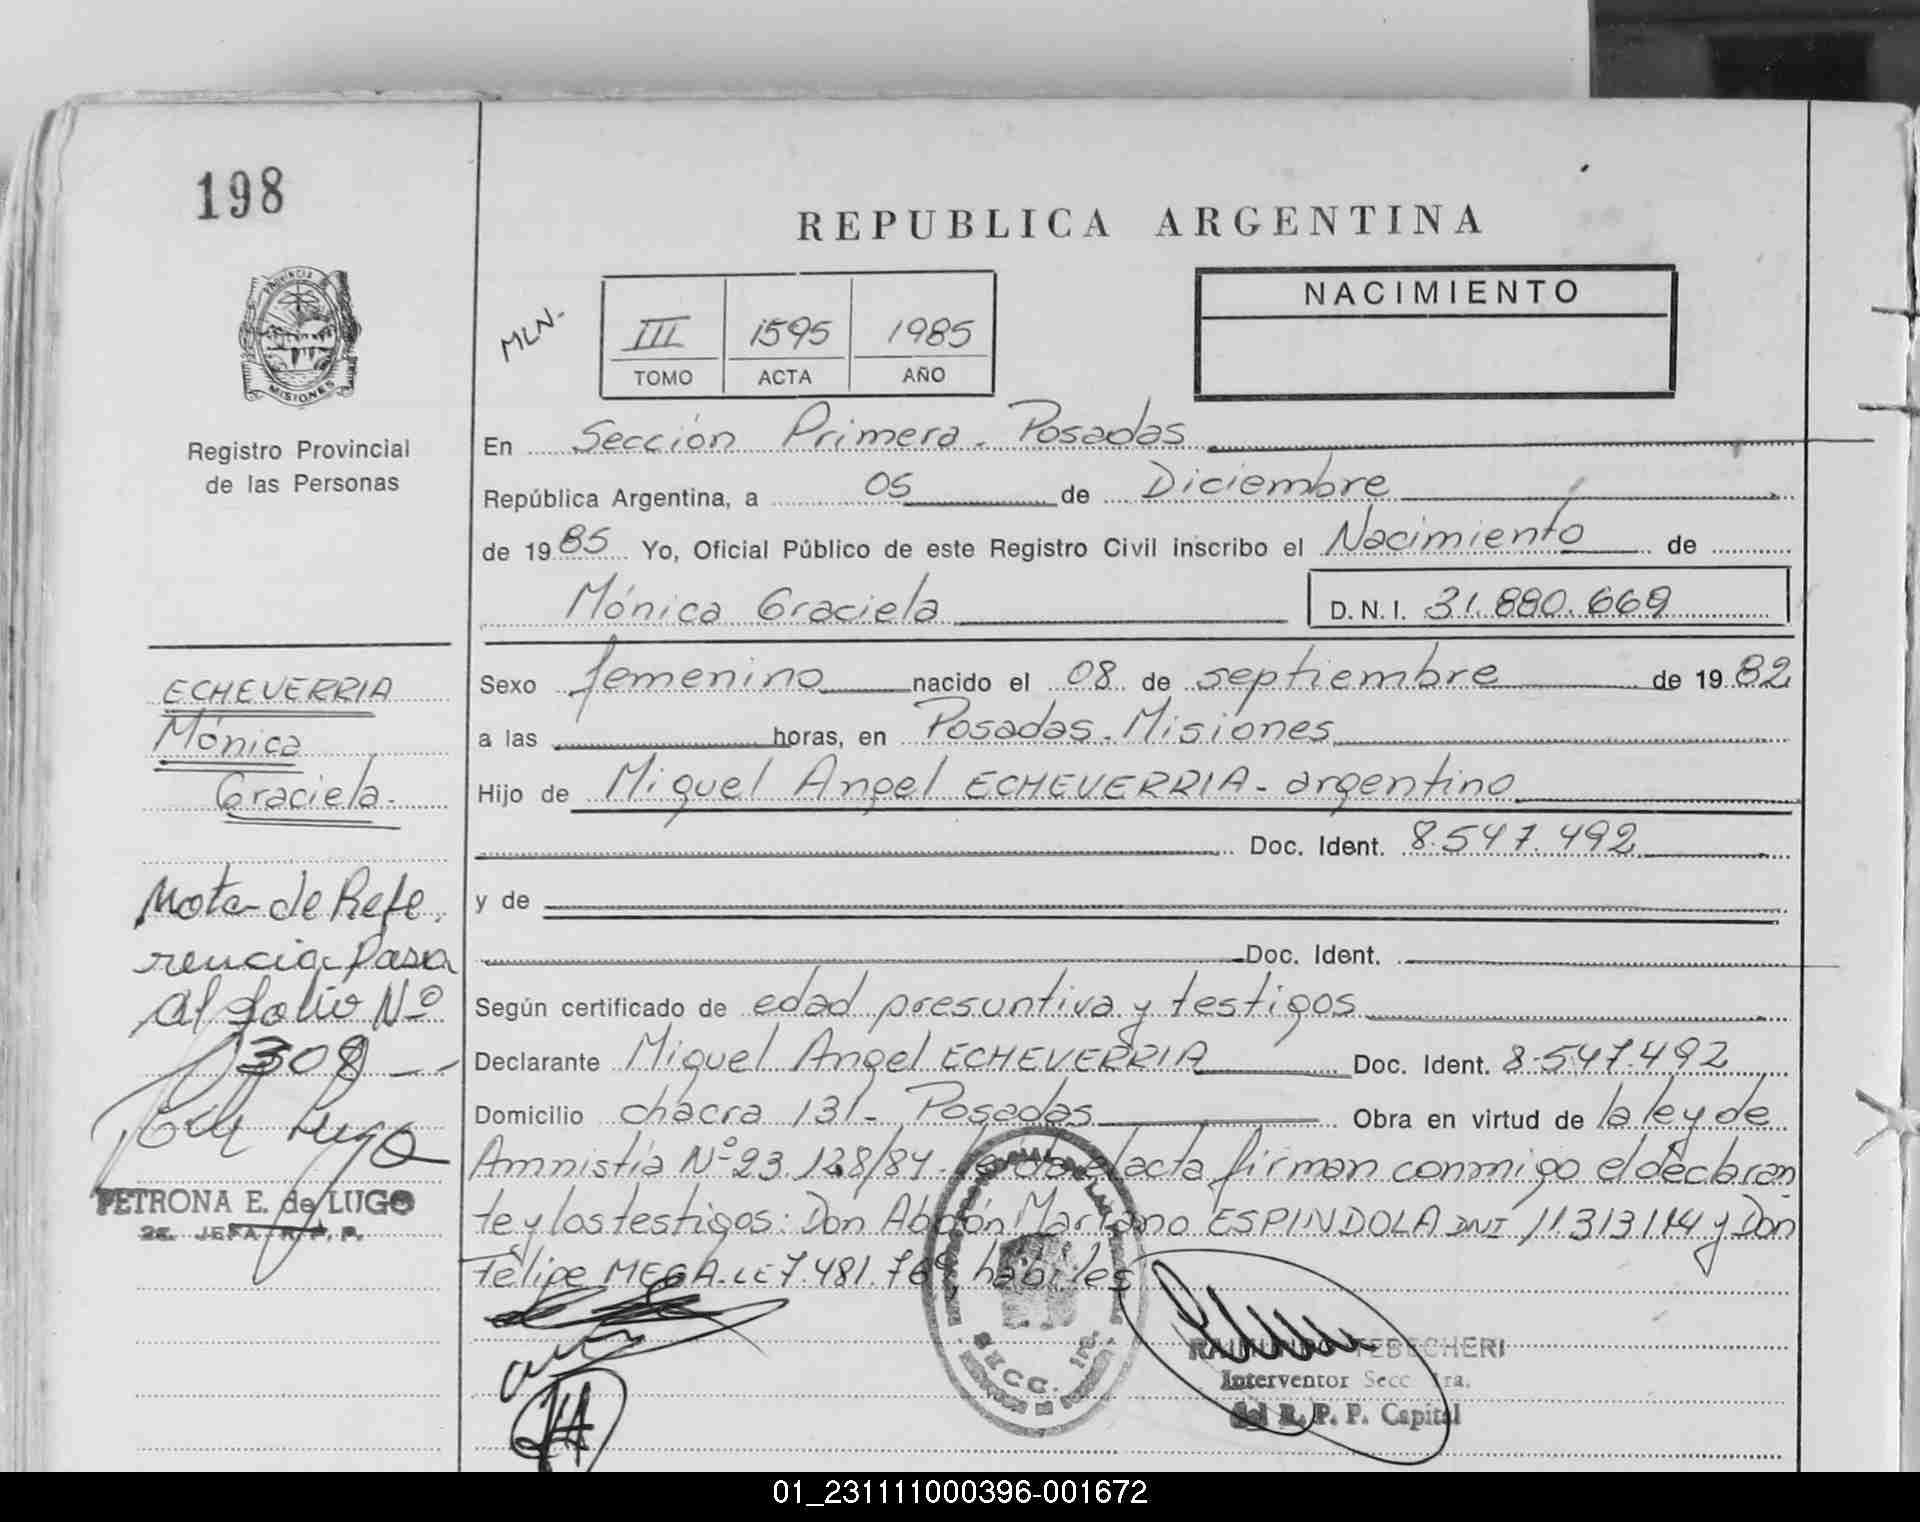 198
REPUBLICA ARGENTINA
PROVINCIA
MISIONES
Registro Provincial
de las Personas
MLN-
III 1595 1985
TOMO ACTA AÑO
NACIMIENTO
En Sección Primera. Posadas
República Argentina, a 05 de Diciembre
de 1985 Yo, Oficial Público de este Registro Civil inscribo el Nacimiento de
Mónica Graciela D.N.I. 31.880.669
ECHEVERRIA
Mónica
Graciela.-
Sexo femenino nacido el 08 de septiembre de 1982
a las horas, en Posadas. Misiones
Hijo de Miguel Angel ECHEVERRIA - argentino
Doc. Ident. 8.547.492
y de
Doc. Ident.
Según certificado de edad presuntiva y testigos
Declarante Miguel Angel ECHEVERRIA Doc. Ident. 8.547.492
Domicilio chacra 131- Posadas Obra en virtud de la ley de
Amnistía Nº 23.128/84. Leída el acta firman conmigo el declaran
te y los testigos: Don Abdón Mariano ESPINDOLA DNI 11313114 y Don
Felipe MEGA. LE 7.481.769, hábiles
Nota de Refe.
rencia Pasa
al folio Nº
308
PETRONA E. de LUGO
2e. JEFA R. P. P.
SECC. 1ra.
RAIMUNDO TEBECHERI
Interventor Secc 1ra.
del R. P. P. Capital
01_231111000396-001672